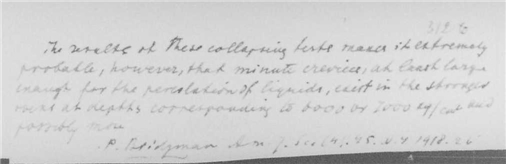 The results of these collapsing tests makes it extremely
probable, however, that minute crevices, at least large
enough for the percolation of liquids, exist in the stronger
rocks at depths corresponding to 6000 or 7000 kg/cm² and
possibly more
P. Bridgman Am. J. Sci (4) 45. 1918.